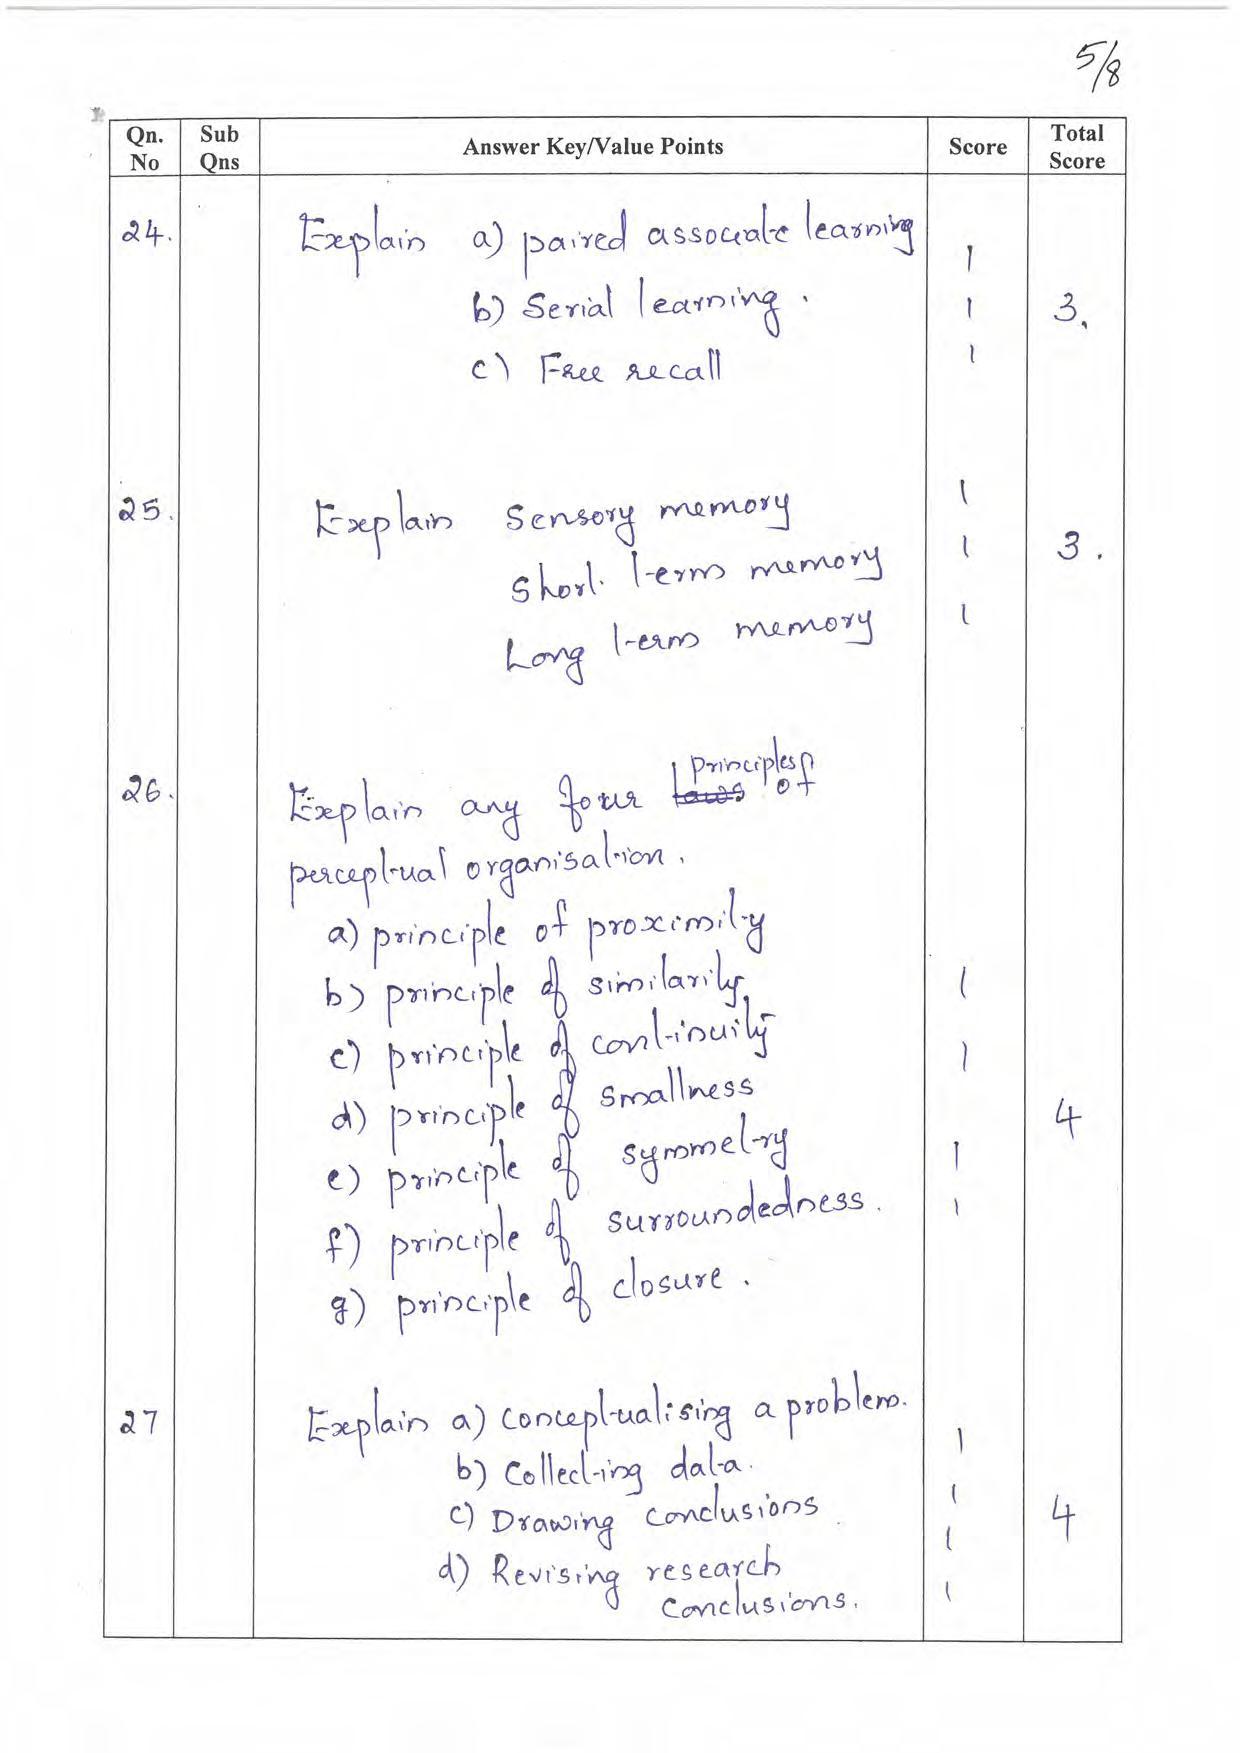 5/8
Qn. No | Sub Qns | Answer Key/Value Points | Score | Total Score
24. Explain a) paired associate learning 1
b) Serial learning. 1 3.
c) Free recall 1
25. Explain Sensory memory 1
Short term memory 1 3.
Long term memory 1
26. Explain any four laws principles of
perceptual organisation.
a) principle of proximity
b) principle of similarity 1
c) principle of continuity 1
d) principle of smallness 4
e) principle of symmetry 1
f) principle of surroundedness. 1
g) principle of closure.
27 Explain a) conceptualising a problem. 1
b) Collecting data. 1
c) Drawing conclusions 1 4
d) Revising research 1
conclusions.